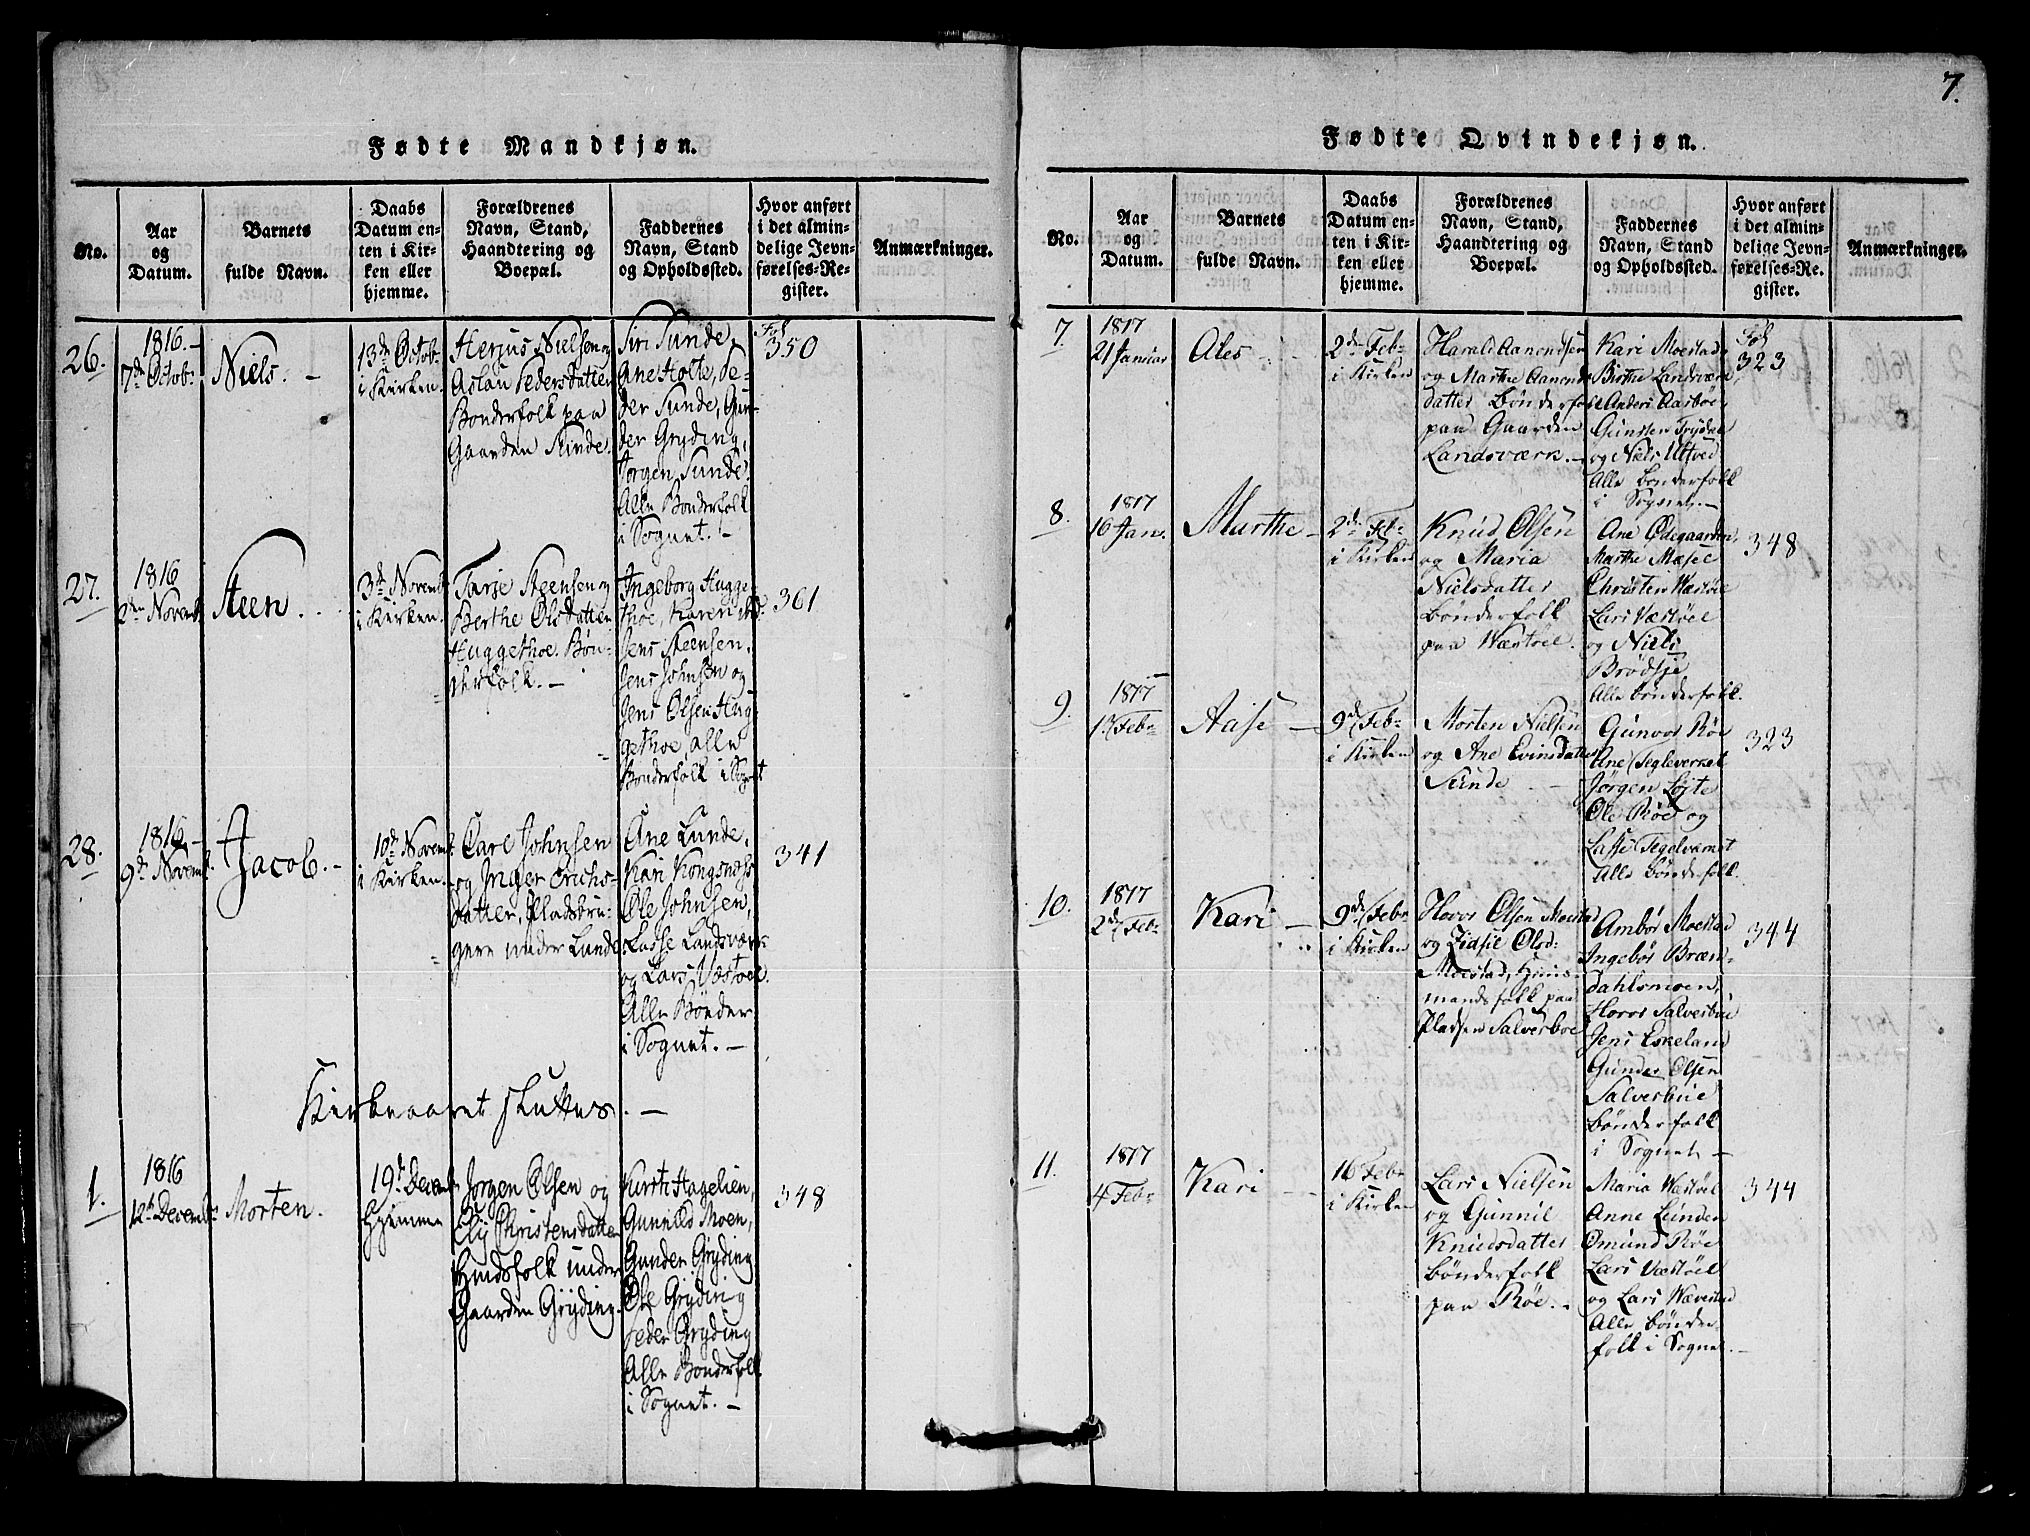 7.
Fødte Mandkjøn.
No.
Aar
og
Datum.
Barnets
fulde Navn.
Daabs
Datum en-
ten i Kir-
ken eller
hjemme.
Forældrenes
Navn, Stand,
Haandtering og
Boepæl.
Faddernes
Navn, Stand
og Opholdssted.
Hvor anført
i det almin-
delige Jevn-
førelses-Re-
gister.
Anmærkninger.
26.
1816.-
7de Octobr:
Niels. -
13de Octob:
i Kirken.
Herjus Nielsen og
Aslau Pedersdatter
Bonderfolk paa
Gaarden Sunde.
Siri Sunde,
Ane Holte, Pe-
der Sunde, Gun-
der Gryding,
Jorgen Sunde.
Alle Bonderfolk
i Sognet. -
Fol
350
27.
1816
2den Novemb.
Steen. . .
3de Novemb
i Kirken.
Tarje Steensen og
Berthe Olsdatter
Huggethoe. Bøn-
derfolk. -
Ingeborg Hugge-
thoe, Karen ibd.
Jens Steensen.
Jens Johnsen og
Jens Olsen Hug-
gethoe, alle
Bonderfolk i Sognet
361
28.
1816.-
9de Novemb.
Jacob. -
10de Novemb.
i Kirken.
Carl Johnsen
og Inger Erichs-
datter, Pladsbru-
gere under Lunde.
Ane Lunde.
Kari Kongsnæss
Ole Johnsen,
Lasse Landsværk
og Lars Væstoel.
Alle Bönder
i Sognet. -
341
Kirkeaaret sluttes. -
1.
1816
12te Decemb:
Morten.
19de Decemb
Hjemme
Jorgen Olsen og
Elij Christensdatter
Huusfolk under
Gaarden Gryding.
Kirsti Hagelien,
Gunnild Moen,
Gunder Gryding
Ole Gryding
Peder Gryding
Alle Bonderfolk
i Sognet. -
348
Fødte Qvindekjøn.
No.
Aar
og
Datum.
Barnets
fulde Navn.
Daabs
Datum en-
ten i Kir-
ken eller
hjemme.
Forældrenes
Navn, Stand,
Haandtering og
Boepæl.
Faddernes
Navn, Stand
og Opholdssted.
Hvor anført
i det almin-
delige Jevn-
førelses-Re-
gister.
Anmærkninger.
7.
1817
21 Januar
Ales
2de Feb:
i Kirken
Harald Aanondsen
og Marthe Aanonds
datter bönderfolk
paa Gaarden
Landsværk. -
Kari Moestad
Birthe Landsværk
Anders Aasboe
Gunsten Trydal
og Niels Ulltved
Alle bönderfolk
i Sognet. -
Fol
323
8.
1817
16 Jan.
Marthe -
2de Feb:
i Kirken
Knud Olsen
og Maria
Nielsdatter
bönderfolk
paa Wæstöel.
Ane Ødegaarden,
Marthe Mæsel
Christen Wæstöe
Lars Væstöel
og Niels
Brödsje
Alle bönderfolk.
348
9.
1817
1de Feb:
Aase -
9de Feb:
i Kirken
Morten Nielsen
og Ane Evinsdatter
Sunde - -
Gunvor Röe
Ane Tegleverket
Jörgen Löjte
Ole Röe og
Lasse Tegelværket
Alle bönderfolk.
323
10.
1817
2de Feb:
Kari -
9de Febr
i Kirken
Hovor Olsen Moestad
og Zidsie Olsd:
Moestad, Huus-
mandsfolk paa
Pladsen Salverboe
Ambör Moestad
Ingebör Bræn-
dahlsmoen,
Hovor Salverbue
Jens Eskeland
Gunder Olsen
Salverbue
bönderfolk
i Sognet -
344
11.
1817
4 Feb:
Kari - -
16 Feb:
i Kirken
Lars Nielsen
og Gunnil
Knudsdatter
bönderfolk
paa Röe. -
Maria Wæstöel
Anne Lunden
Omund Röe
Lars Væstöel
og Lars Wævestad
Alle bönder-
folk i Sognet. -
344